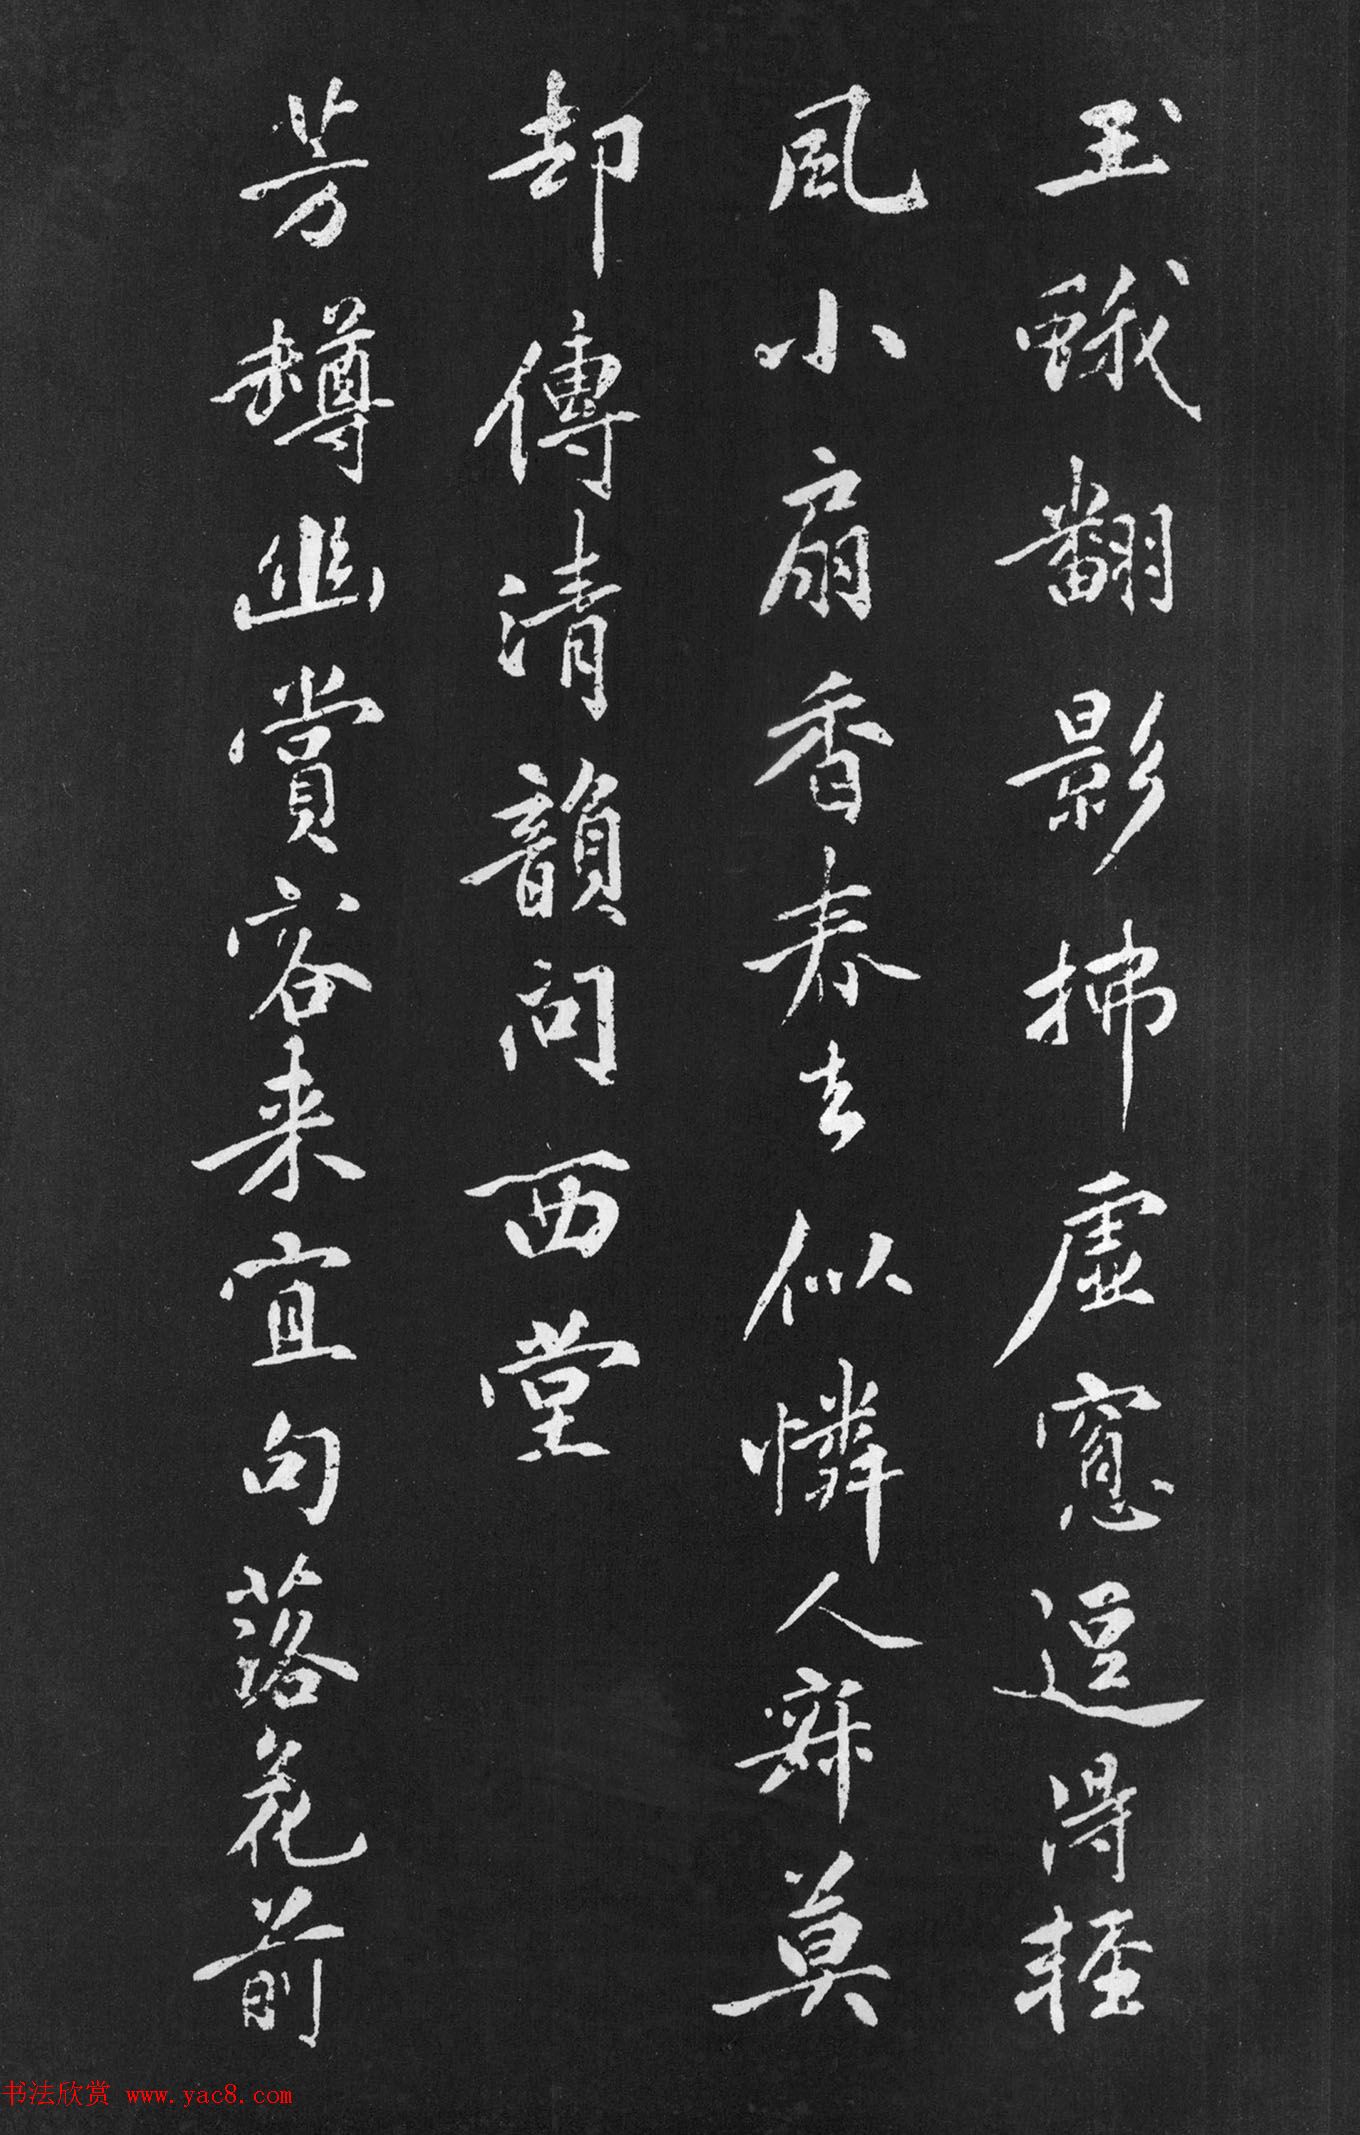 玉蛾翻影拂虛窓逗得輕
風小扇香春去似憐人寂莫
却傳清韻問西堂
芳罇幽賞客来宜句落花前
书法欣赏 www.yac8.com